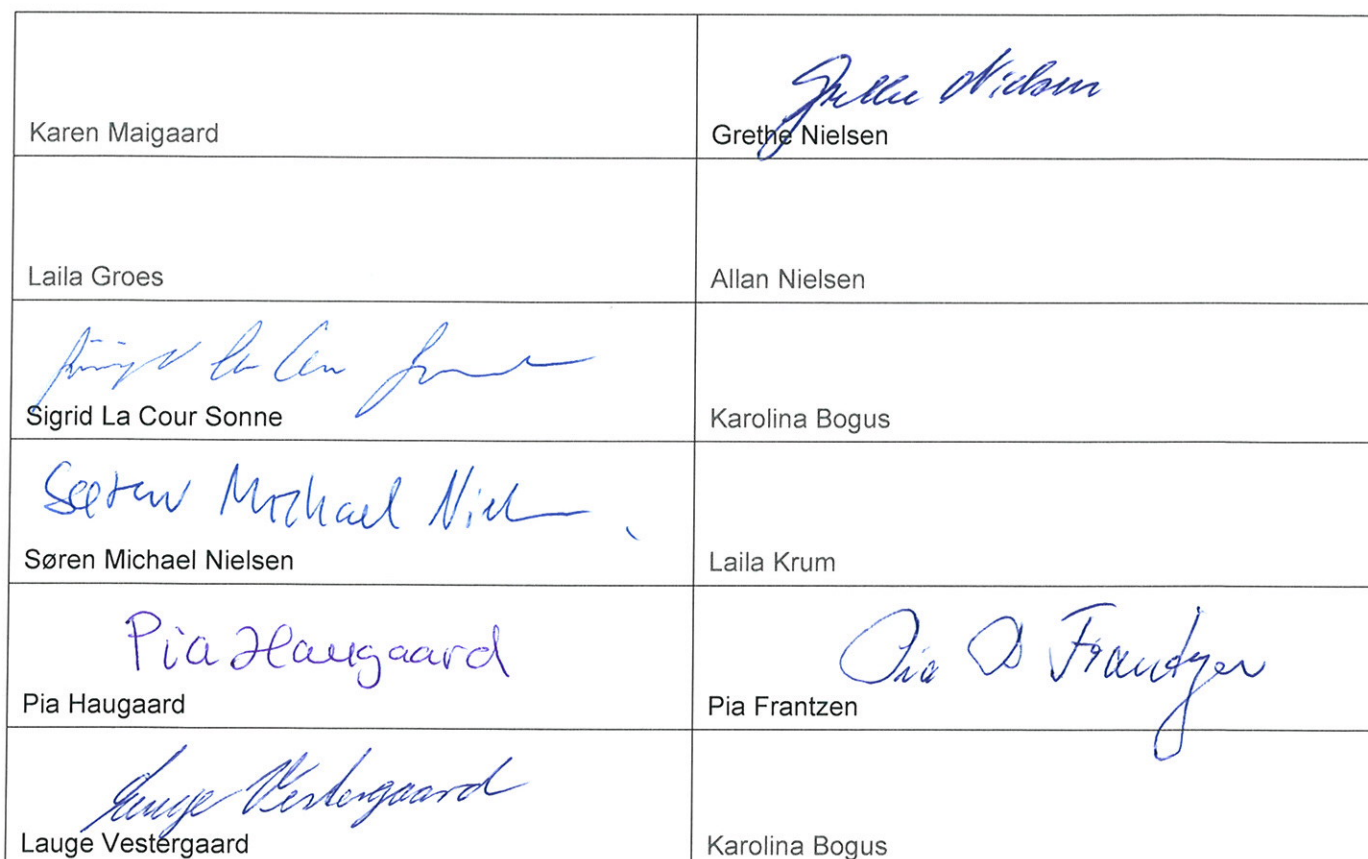 Karen Maigaard
Grethe Nielsen
Grethe Nielsen
Laila Groes
Allan Nielsen
Sigrid La Cour Sonne
Sigrid La Cour Sonne
Karolina Bogus
Søren Michael Nielsen
Laila Krum
Pia Haugaard
Pia Haugaard
Pia Frantzen
Pia Frantzen
Lauge Vestergaard
Lauge Vestergaard
Karolina Bogus